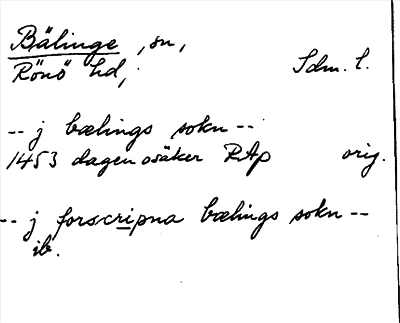 Bälinge, sn,
Rönö hd, Sdm. l.
-- j bælings sokn --
1453 dagen osäker RAp orig.
-- j forscripna bælings sokn --
ib.